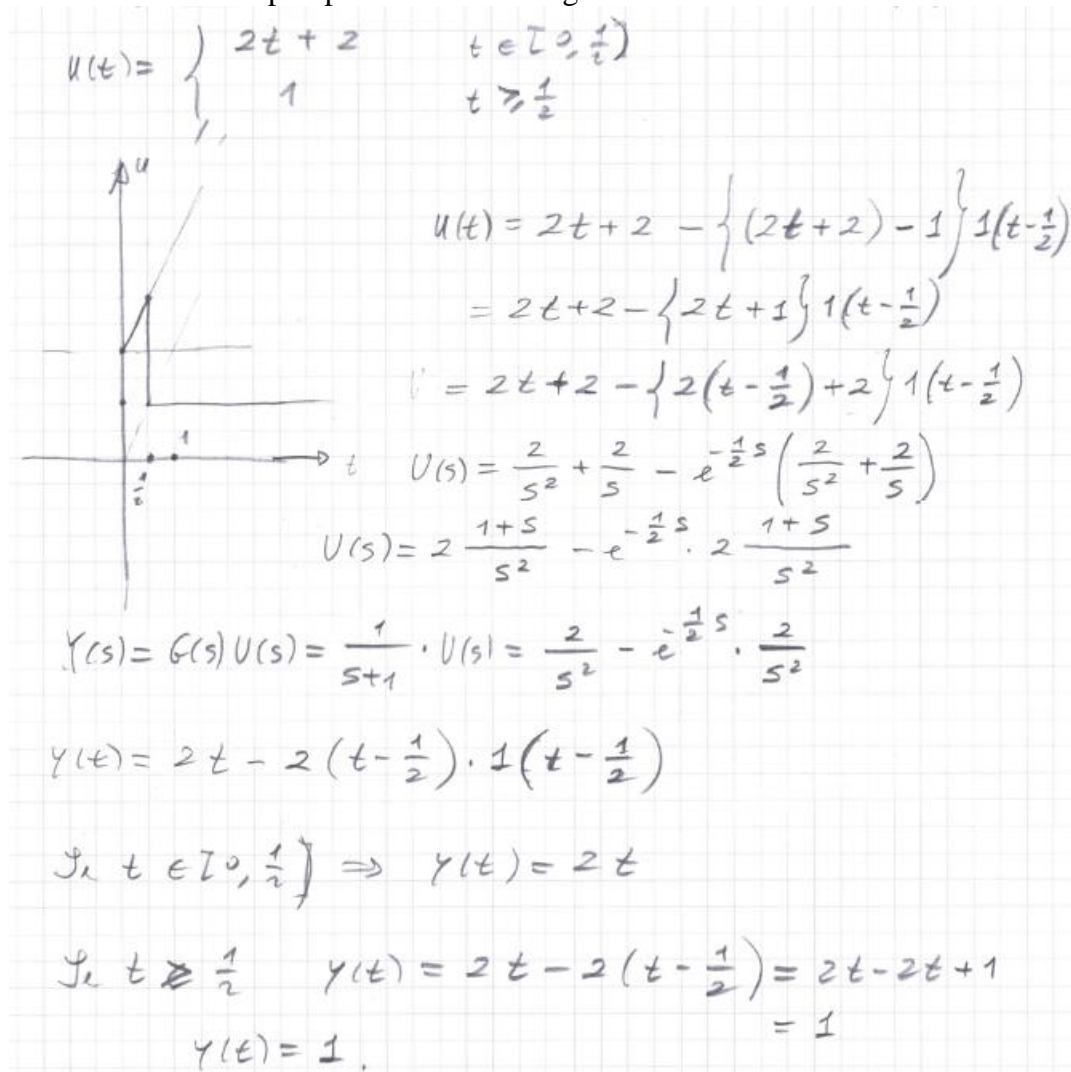 u(t) = { 2t + 2 t ∈ [0, 1/2)
1 t ≥ 1/2
u
u(t) = 2t + 2 - {(2t + 2) - 1} 1(t - 1/2)
= 2t + 2 - {2t + 1} 1(t - 1/2)
= 2t + 2 - {2(t - 1/2) + 2} 1(t - 1/2)
1
1/2
t
U(s) = 2/s² + 2/s - e^(-1/2 s) (2/s² + 2/s)
U(s) = 2 (1+s)/s² - e^(-1/2 s) · 2 (1+s)/s²
Y(s) = G(s) U(s) = 1/(s+1) · U(s) = 2/s² - e^(-1/2 s) · 2/s²
y(t) = 2t - 2(t - 1/2) · 1(t - 1/2)
Se t ∈ [0, 1/2) ⇒ y(t) = 2t
Se t ≥ 1/2 y(t) = 2t - 2(t - 1/2) = 2t - 2t + 1
= 1
y(t) = 1.